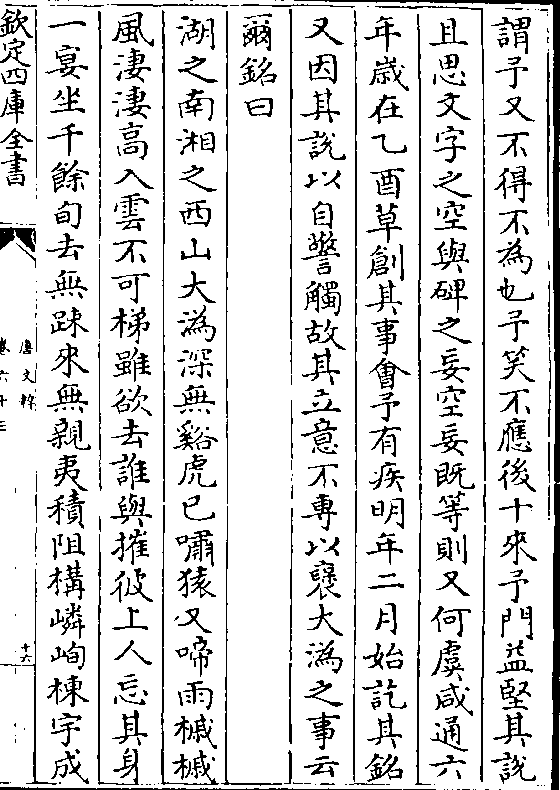 謂予又不得不為也予笑不應後十來予門益堅其說
且思文字之空與碑之妄空妄既等則又何虞咸通六
年歲在乙酉草創其事會予有疾明年二月始訖其銘
又因其說以自警觸故其立意不專以褒大溈之事云
爾銘曰
湖之南湘之西山大溈深無谿虎已嘯猿又啼雨槭槭
風淒淒高入雲不可梯雖欲去誰與攜彼上人忘其身
一宴坐千餘旬去無踈來無親夷積阻構嶙峋棟宇成
欽定四庫全書
唐文粹
卷六十三
十六